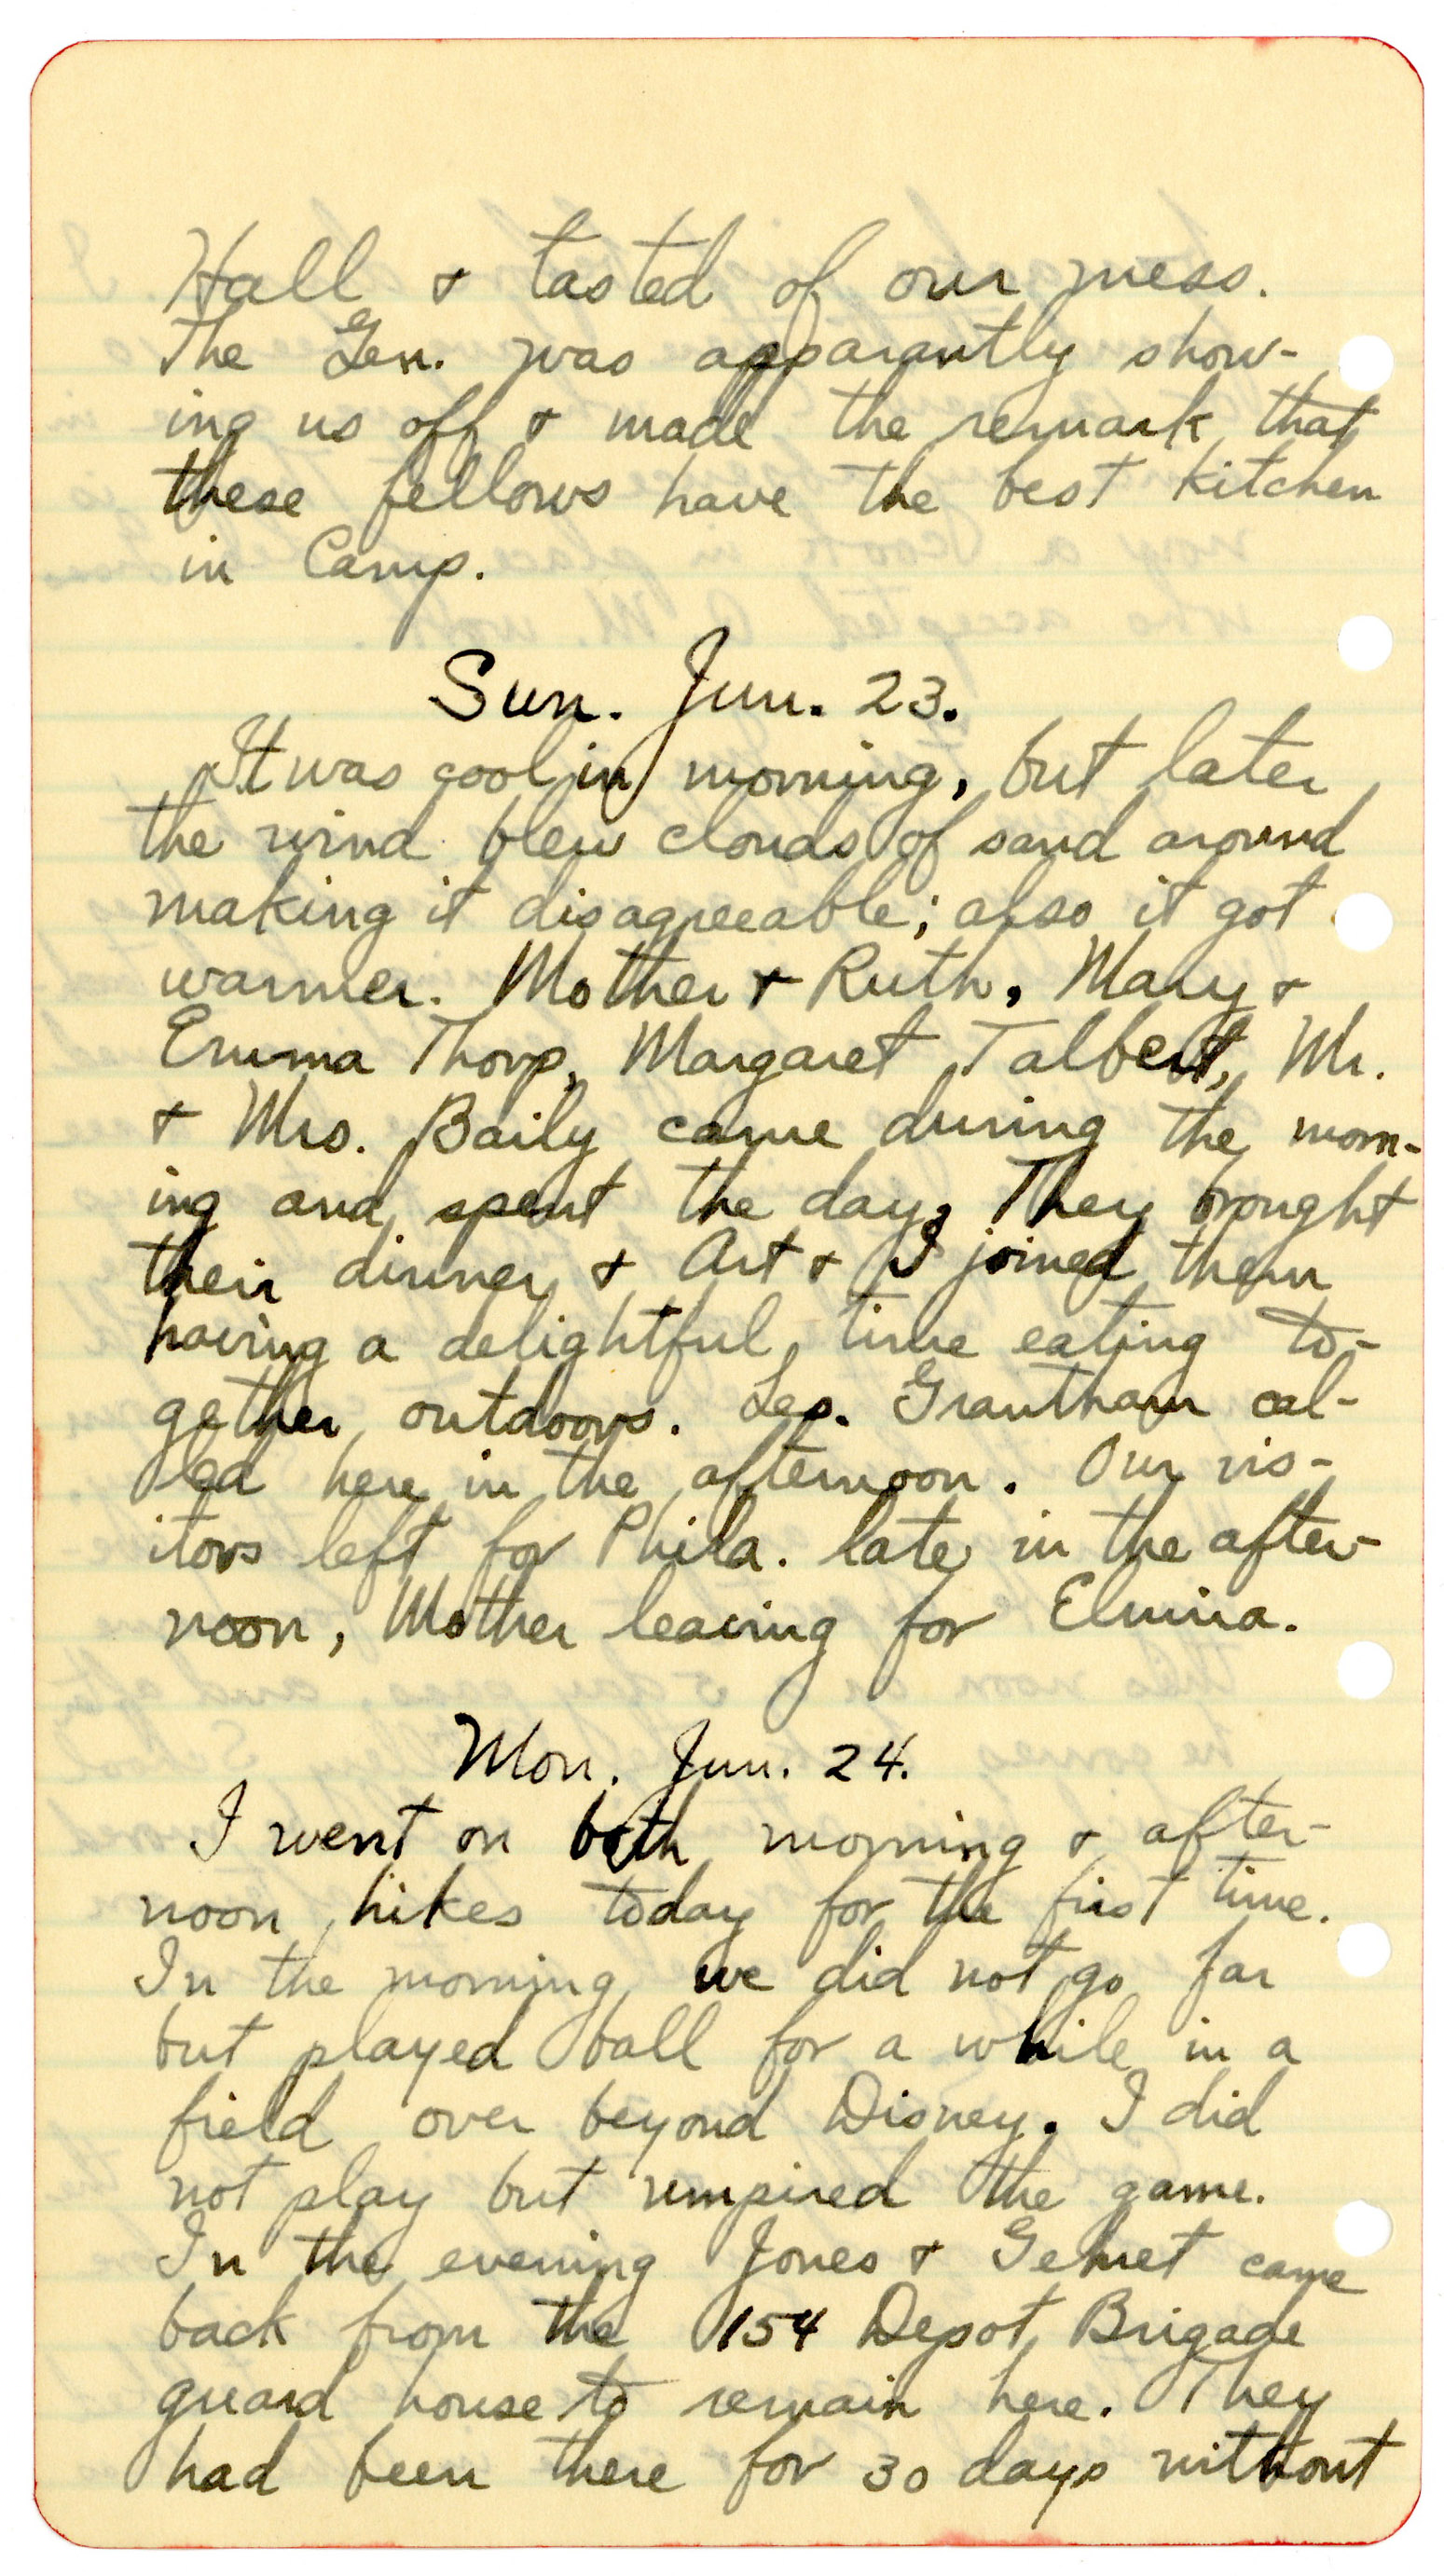 Hall & tasted of our mess.
The Gen. was apparantly show-
ing us off & made the remark that
these fellows have the best kitchen
in Camp.
Sun. Jun. 23.
It was cool in morning, but later
the wind blew clouds of sand around
making it disagreeable; also it got
warmer. Mother & Ruth, Mary &
Emma Thorp, Margaret Talbert, Mr.
& Mrs. Baily came during the morn-
ing and spent the day. They brought
their dinner & Art & I joined them
having a delightful time eating to-
gether outdoors. Les. Grantham cal-
led here in the afternoon. Our vis-
itors left for Phila. late in the after-
noon, Mother leaving for Elmira.
Mon. Jun. 24.
I went on both morning & after-
noon hikes today for the first time.
In the morning we did not go far
but played ball for a while in a
field over beyond Disney. I did
not play but umpired the game.
In the evening Jones & Gehret came
back from the 154 Depot Brigade
guard house to remain here. They
had been there for 30 days without